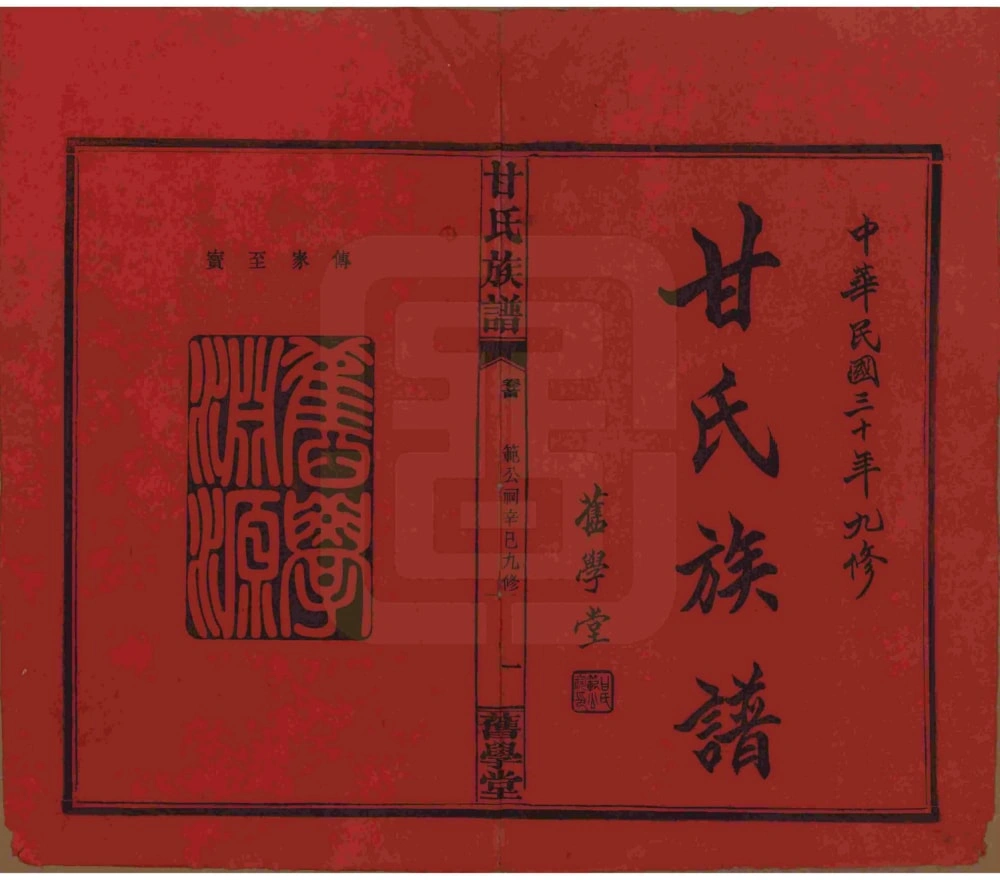 中華民國三十年九修
甘氏族譜
舊學堂
甘氏族譜
卷首
範公祠辛巳九修
一
舊學堂
傳家至寶
舊學淵源